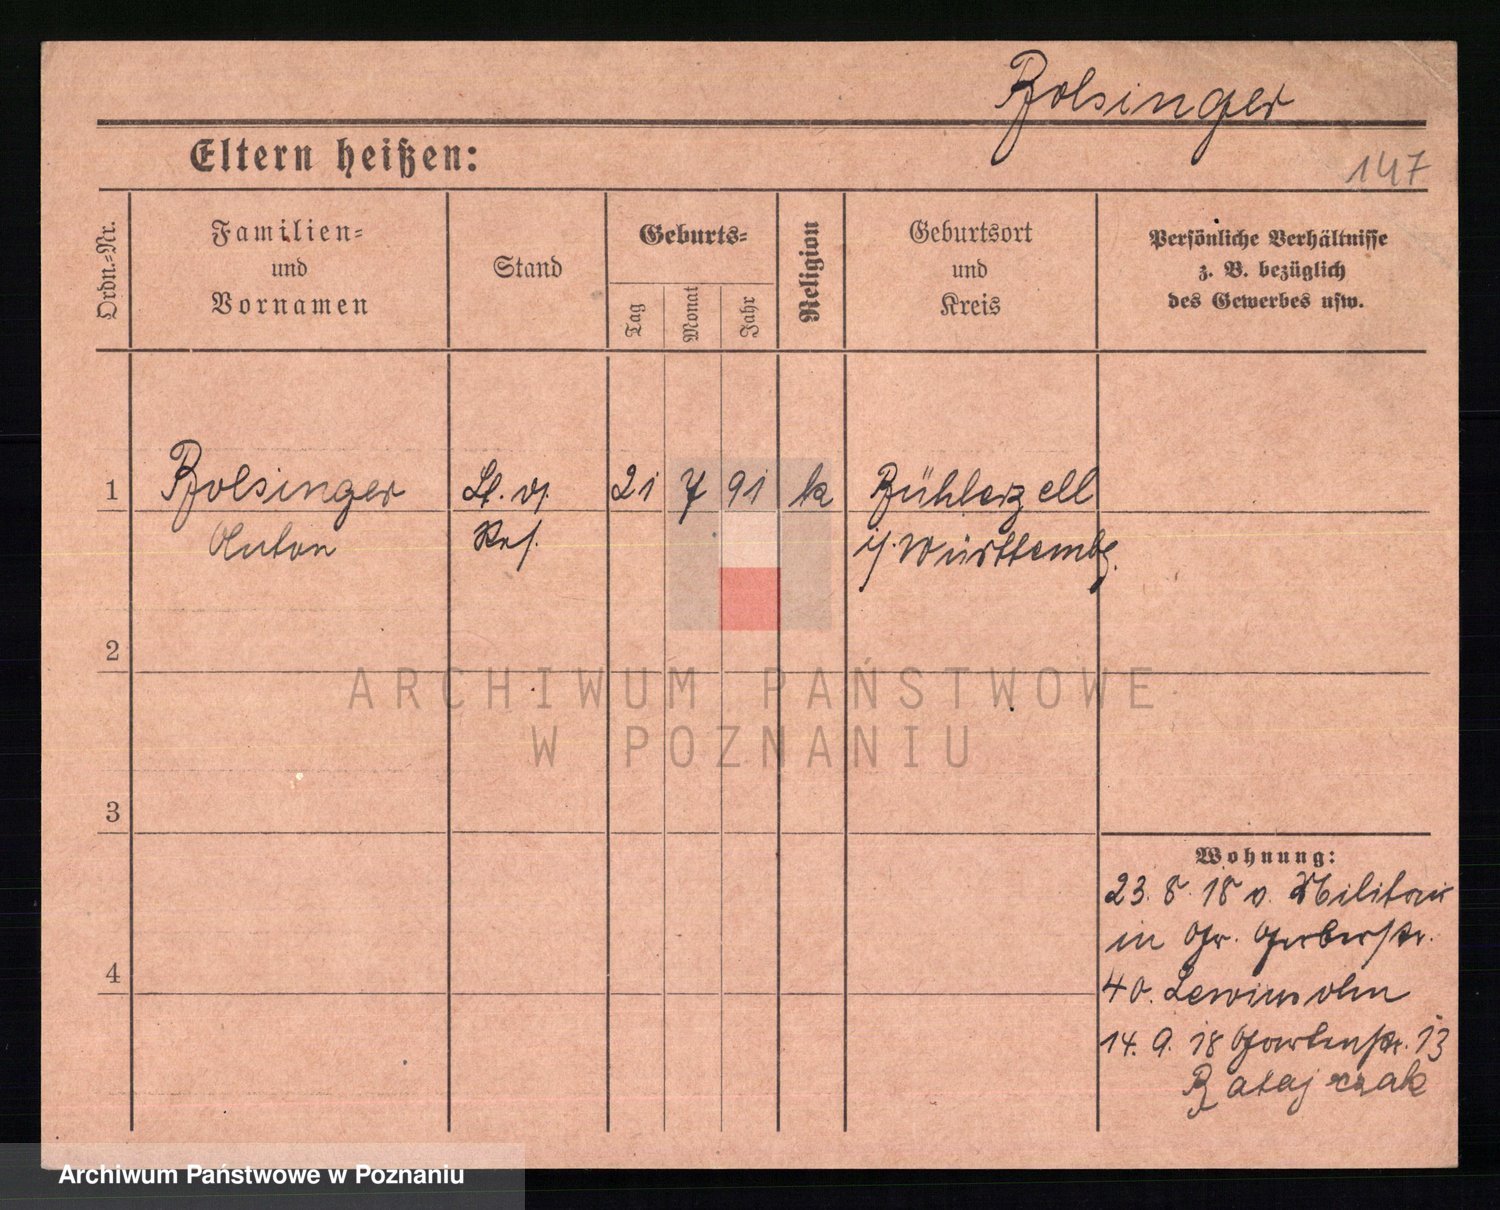 Bolsinger
Eltern heißen:
147
Ordn.=Nr.
Familien=
und
Vornamen
Stand
Geburts=
Tag
Monat
Jahr
Religion
Geburtsort
und
Kreis
Persönliche Verhältnisse
z. B. bezüglich
des Gewerbes usw.
1
Bolsinger
Anton
Lt. d.
Res.
21 7 91
k
Bühlerzell
i. Württembg.
2
3
4
Wohnung:
23. 8. 18 v. Militär
in Gr. Gerberstr.
40. Lewinsohn
14. 9. 18 Gartenstr. 13
Ratajczak
ARCHIWUM PAŃSTWOWE
W POZNANIU
Archiwum Państwowe w Poznaniu